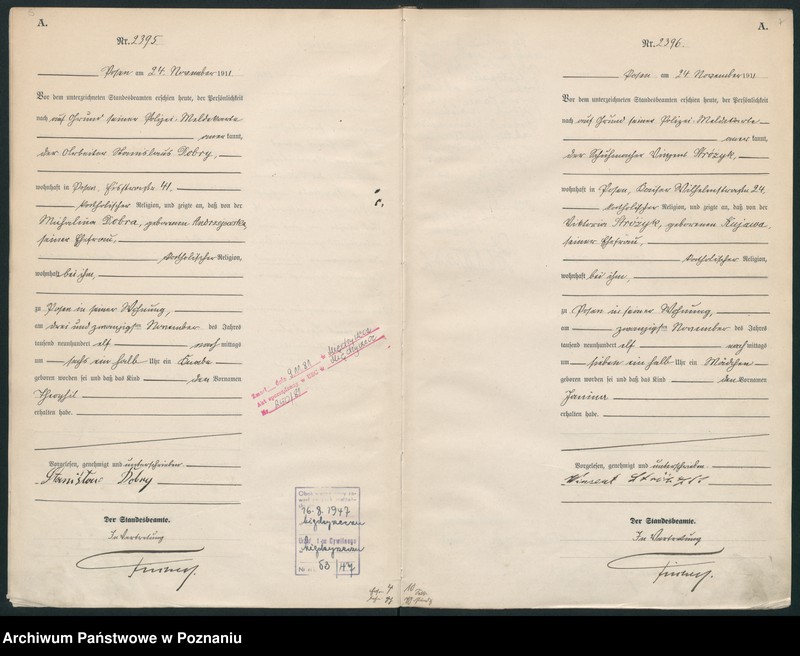 A.
Nr. 2395
Posen am 24. November 1911
Vor dem unterzeichneten Standesbeamten erschien heute, der Persönlichkeit
nach auf Grund seiner Polizei-Meldekarte
anerkannt,
der Arbeiter Stanislaus Dobry,
wohnhaft in Posen, 41,
katholischer Religion, und zeigte an, daß von der
Michalina Dobra, geborenen Andrzejewska,
seiner Ehefrau,
katholischer Religion,
wohnhaft bei ihm,
zu Posen in seiner Wohnung,
am drei und zwanzigsten November des Jahres
tausend neunhundert elf nachmittags
um sechs ein halb Uhr ein Knabe
geboren worden sei und daß das Kind den Vornamen
Theophil
erhalten habe.
Vorgelesen, genehmigt und unterschrieben
Stanisław Dobry
Der Standesbeamte.
In Vertretung
9.11.83
16.8.1947
53/47
A.
Nr. 2396
Posen am 24. November 1911
Vor dem unterzeichneten Standesbeamten erschien heute, der Persönlichkeit
nach auf Grund seiner Polizei-Meldekarte
anerkannt,
der Schuhmacher Vinzent Stróżyk,
wohnhaft in Posen, Kaiser Wilhelmstraße 24,
katholischer Religion, und zeigte an, daß von der
Viktoria Stróżyk, geborenen Kujawa,
seiner Ehefrau,
katholischer Religion,
wohnhaft bei ihm,
zu Posen in seiner Wohnung,
am zwanzigsten November des Jahres
tausend neunhundert elf nachmittags
um sieben ein halb Uhr ein Mädchen
geboren worden sei und daß das Kind den Vornamen
Janina
erhalten habe.
Vorgelesen, genehmigt und unterschrieben
Der Standesbeamte.
In Vertretung
Archiwum Państwowe w Poznaniu